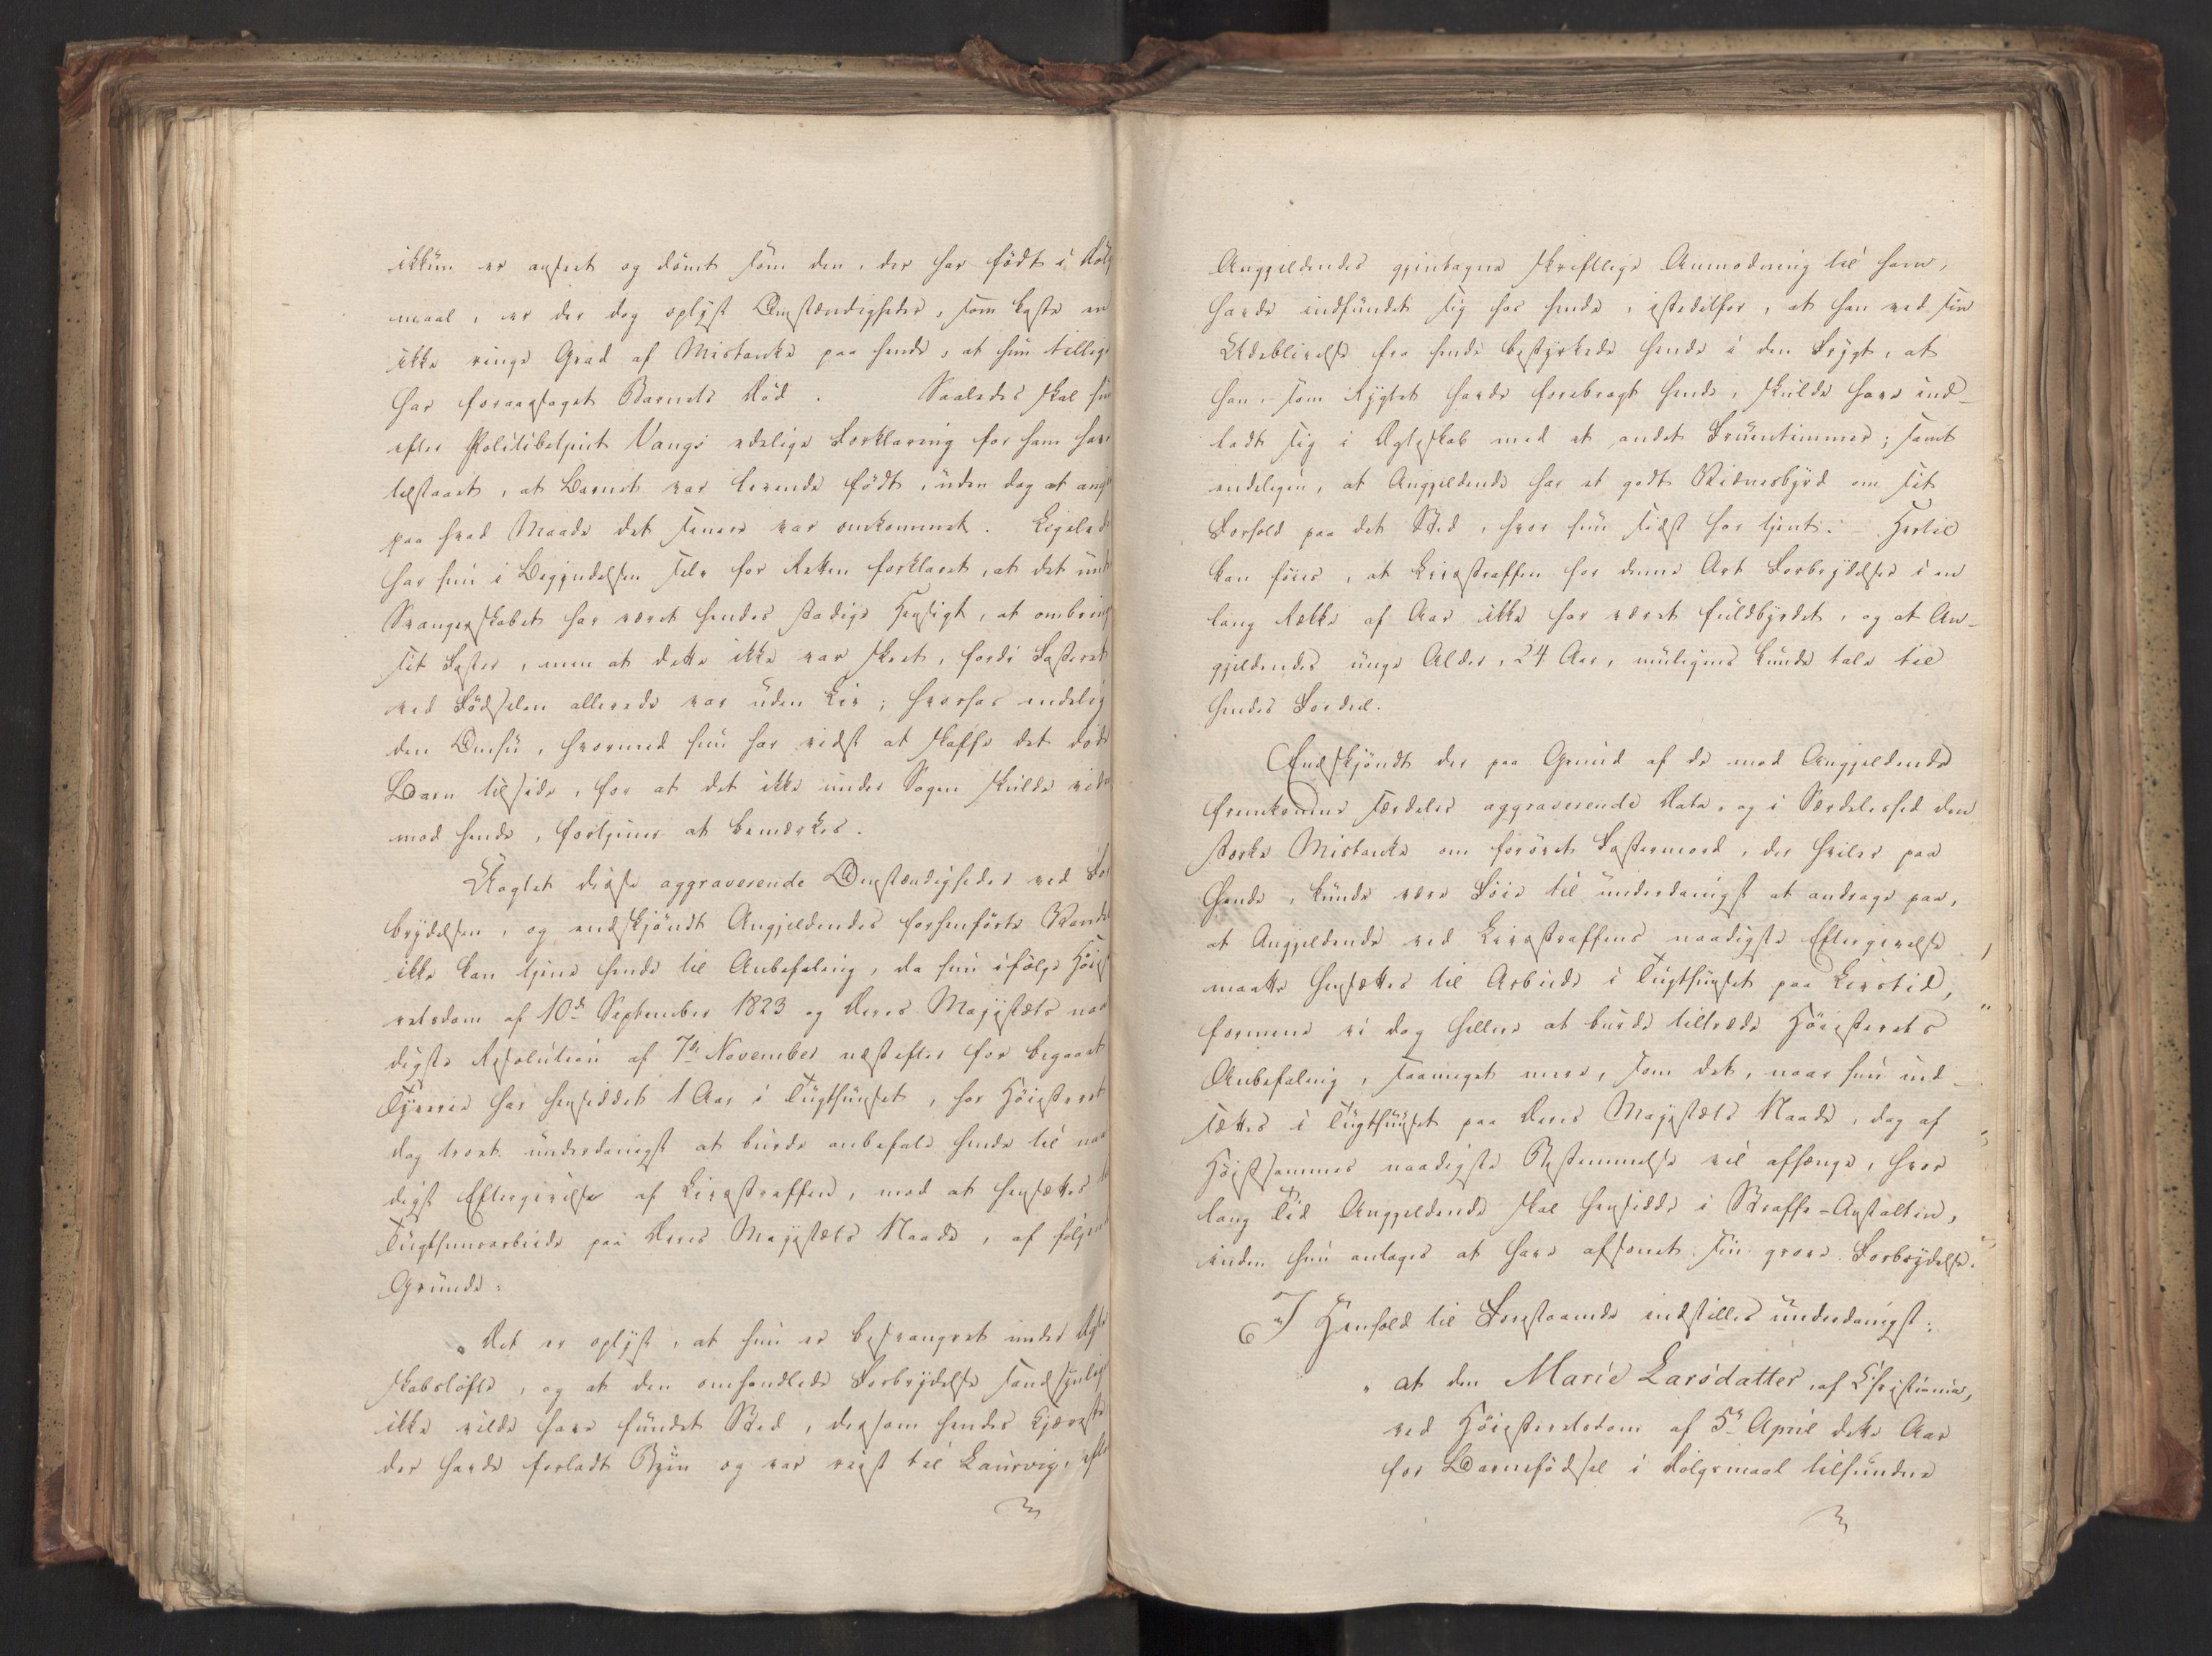 ikkun er anseet og dömt som den, der har födt i Döls
maal, er der dog oplÿst Omstændigheder, som kaste en
ikke ringe Grad af Mistanke paa hende, at hun tillige
har foraarsaget Barnets Död. Saaledes skal hun
efter Politibetjent Vangs edelige Forklaring for ham have
tilstaaet, at Barnet var levende födt, uden dog at angi
paa hvad Maade det senere var omkommet. Ligeledes
har hun i Begyndelsen selv for Retten forklaret, at det under
Svangerskabet har været hendes stadige Hensigt, at ombringe
sit Foster, men at dette ikke var skeet, fordi Fosteret
ved Födselen allerede var uden Liv; hvorhos endelig
den Omhu, hvormed hun har vidst at skaffe det döde
Barn tilside, for at det ikke under Sagen skulde vidne
mod hende, fortjener at bemærkes.
Uagtet disse aggraverende Omstændigheder ved For
brydelsen, og endskjöndt Angjeldendes forhenförte Vandel
ikke kan tjene hende til Anbefaling, da hun ifölge Höieste
retsdom af 10de September 1823 og Deres Majestæts naa
digste Resolution af 7de November næstefter for begaaet
Tyverie har hensiddet 1 Aar i Tugthuuset, har Höiesteret
dog troet underdanigst at burde anbefale hende til naa
digst Eftergivelse af Livsstraffen, mod at hensættes til
Tugthuusarbeide paa Deres Majestæts Naade, af fölgende
Grunde:
„Det er oplyst, at hun er besvangret under Ægte
skabslöfte, og at den omhandlede Forbrydelse sandsynligt
ikke vilde have fundet Sted, dersom hendes Kjæreste
der havde forladt Byen og var reist til Laurvig, efter
Angjeldendes gjentagne skriftlige Anmodning til ham,
havde indfundet sig hos hende, istedetfor, at han ved sin
Udeblivelse fra hende bestyrkede hende i den Frygt, at
han, som Rygtet havde forebragt hende, skulde have ind-
ladt sig i Ægteskab med et andet Fruentimmer; samt
endeligen, at Angjeldende har et godt Vidnesbyrd om sit
Forhold paa det Sted, hvor hun sidst har tjent. – Hertil
kan föies, at Livsstraffen for denne Art Forbrydelser i en
lang Række af Aar ikke har været fuldbyrdet, og at An-
gjeldendes unge Alder, 24 Aar, muligens kunde tale til
hendes Fordeel.
Endskjöndt der paa Grund af de mod Angjeldende
fremkomne særdeles aggraverende Data, og i Særdeleshed den
stærke Mistanke om forövet Fostermord, der hviler paa
hende, kunde være Föie til underdanigst at andrage paa,
at Angjeldende ved Livsstraffens naadigste Eftergivelse
maatte hensættes til Arbeide i Tugthuuset paa Livstid,
formene vi dog hellere at burde tiltræde Höiesterets
Anbefaling, saameget mere, som det, naar hun ind-
sættes i Tugthuuset paa Deres Majestæts Naade, dog af
Höistsammes naadigste Bestemmelse vil afhænge, hvor
lang Tid Angjeldende skal hensidde i Straffe-Anstalten,
inden hun antages at have afsonet sin grove Forbrydelse.
I Henhold til Forestaaende indstilles underdanigst:
„at den Marie Larsdatter, af Christiania,
ved Höiesteretsdom af 5te April dette Aar
for Barnefödsel i Dölgsmaal tilfundne